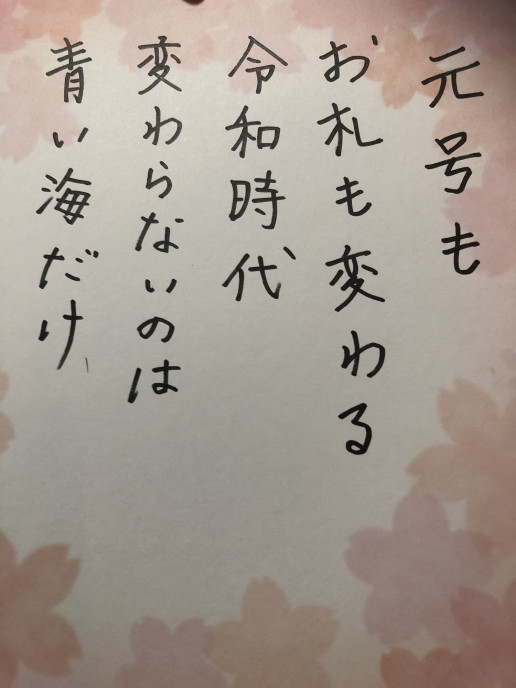 元号も
お札も変わる
令和時代
変わらないのは
青い海だけ